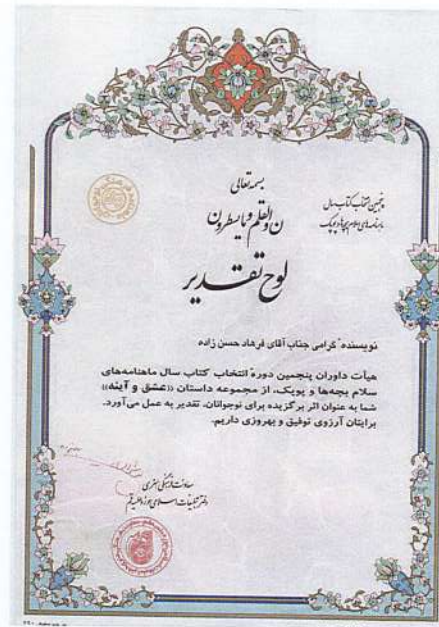 بسمه تعالی
ن والقلم و ما یسطرون
پنجمین انتخاب کتاب سال
ماهنامه‌های سلام بچه‌ها و پوپک
لوح تقدیر
نویسندهٔ گرامی جناب آقای فرهاد حسن زاده
هیأت داوران پنجمین دورهٔ انتخاب کتاب سال ماهنامه‌های
سلام بچه‌ها و پوپک، از مجموعه داستان «عشق و آینه»
شما به عنوان اثر برگزیده برای نوجوانان، تقدیر به عمل می‌آورد.
برایتان آرزوی توفیق و بهروزی داریم.
معاونت فرهنگی هنری
دفتر تبلیغات اسلامی حوزه علمیه قم